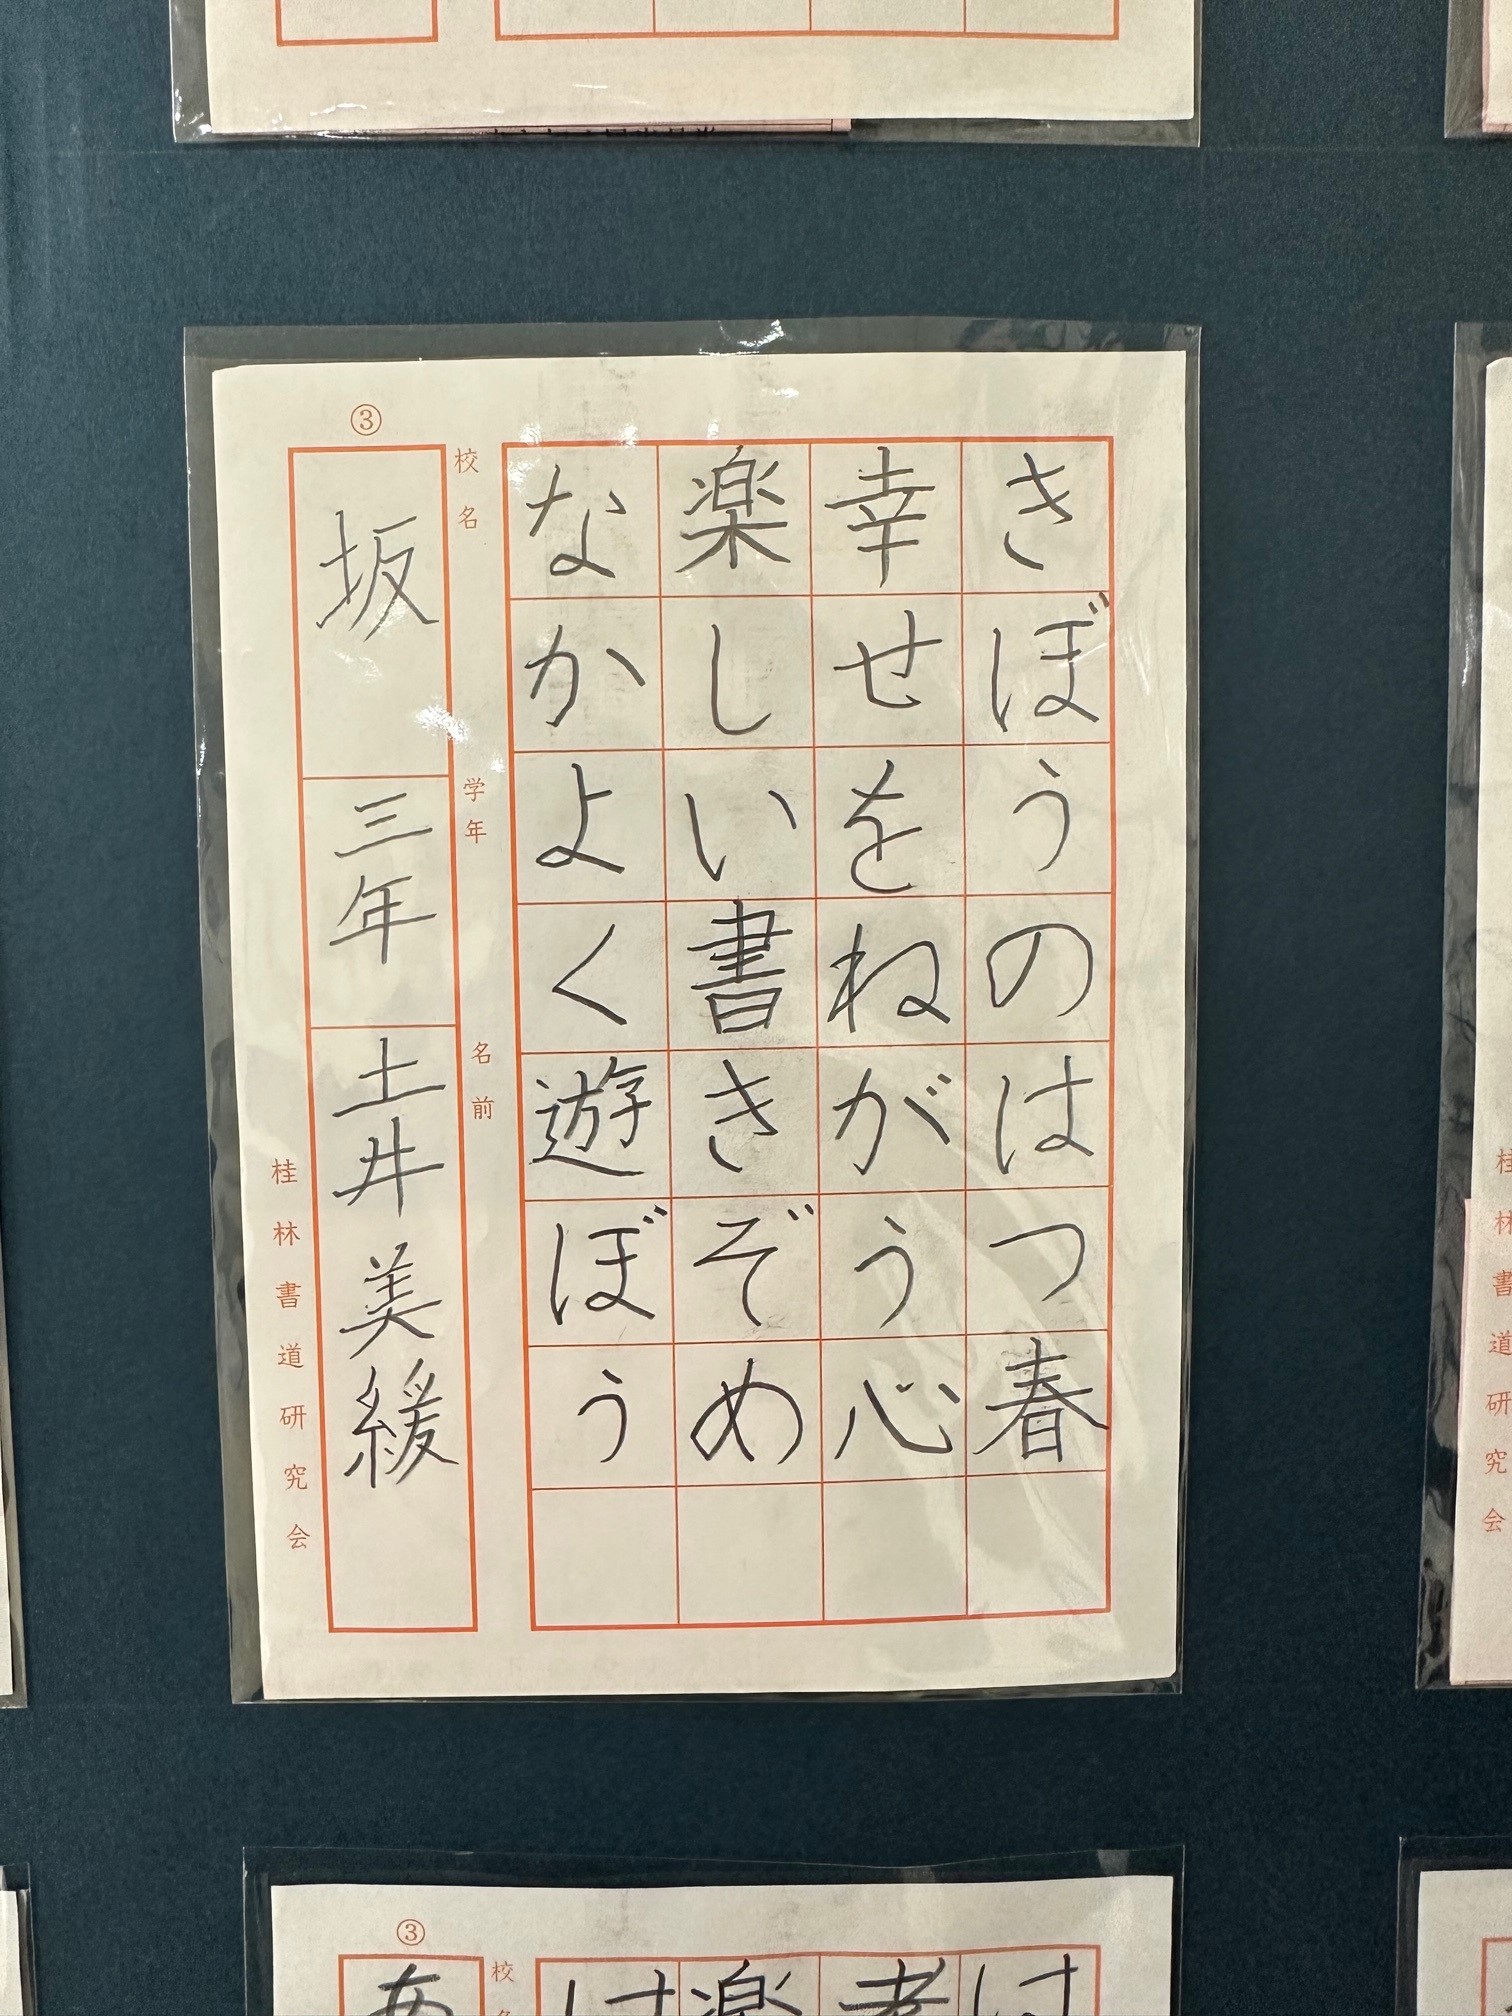 ③
きぼうのはつ春
幸せをねがう心
楽しい書きぞめ
なかよく遊ぼう
校名
坂
学年
三年
名前
土井美緩
桂林書道研究会
桂林書道研究会
③
校
は
楽
は